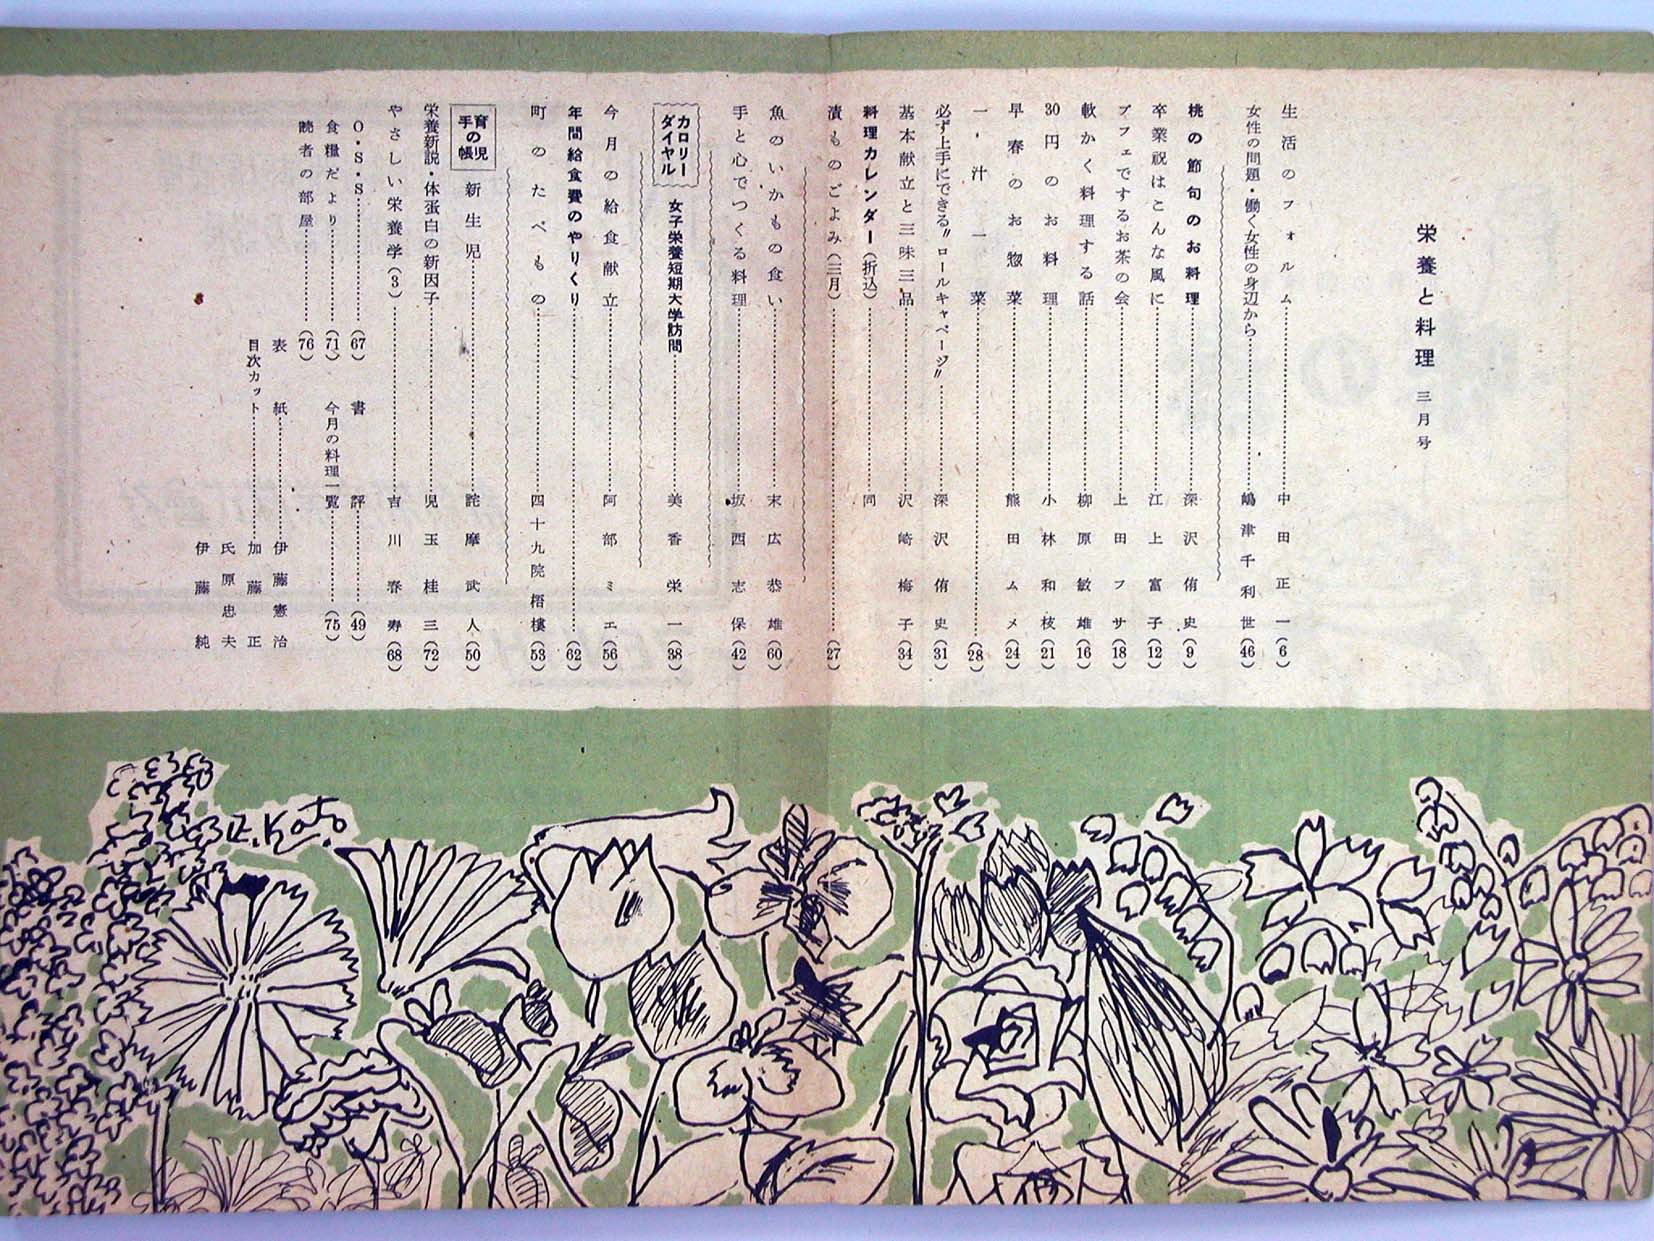 栄養と料理 三月号
生活のフォルム……中田正一(6)
女性の問題・働く女性の身辺から……嶋津千利世(46)
桃の節句のお料理……深沢侑史(9)
卒業祝はこんな風に……江上富子(12)
ブフェでするお茶の会……上田フサ(18)
軟かく料理する話……柳原敏雄(16)
30円のお料理……小林和枝(21)
早春のお惣菜……熊田ムメ(24)
一汁一菜……(28)
必ず上手にできる〃ロールキャベージ〃……深沢侑史(31)
基本献立と三味三品……沢崎梅子(34)
料理カレンダー(折込)……同
漬ものごよみ(三月)……(27)
魚のいかもの食い……末広恭雄(60)
手と心でつくる料理……坂西志保(42)
カロリーダイヤル 女子栄養短期大学訪問……美香栄一(38)
今月の給食献立……阿部ミエ(56)
年間給食費のやりくり……(62)
町のたべもの……四十九院梧樓(53)
育児の手帳 新生児……詫摩武人(50)
栄養新説・体蛋白の新因子……児玉桂三(72)
やさしい栄養学(3)……吉川春寿(68)
O・S・S……(67)
書評……(49)
食糧だより……(71)
今月の料理一覧……(75)
読者の部屋……(76)
表紙……伊藤憲治
目次カット……加藤正
氏原忠夫
伊藤純
E.Kato